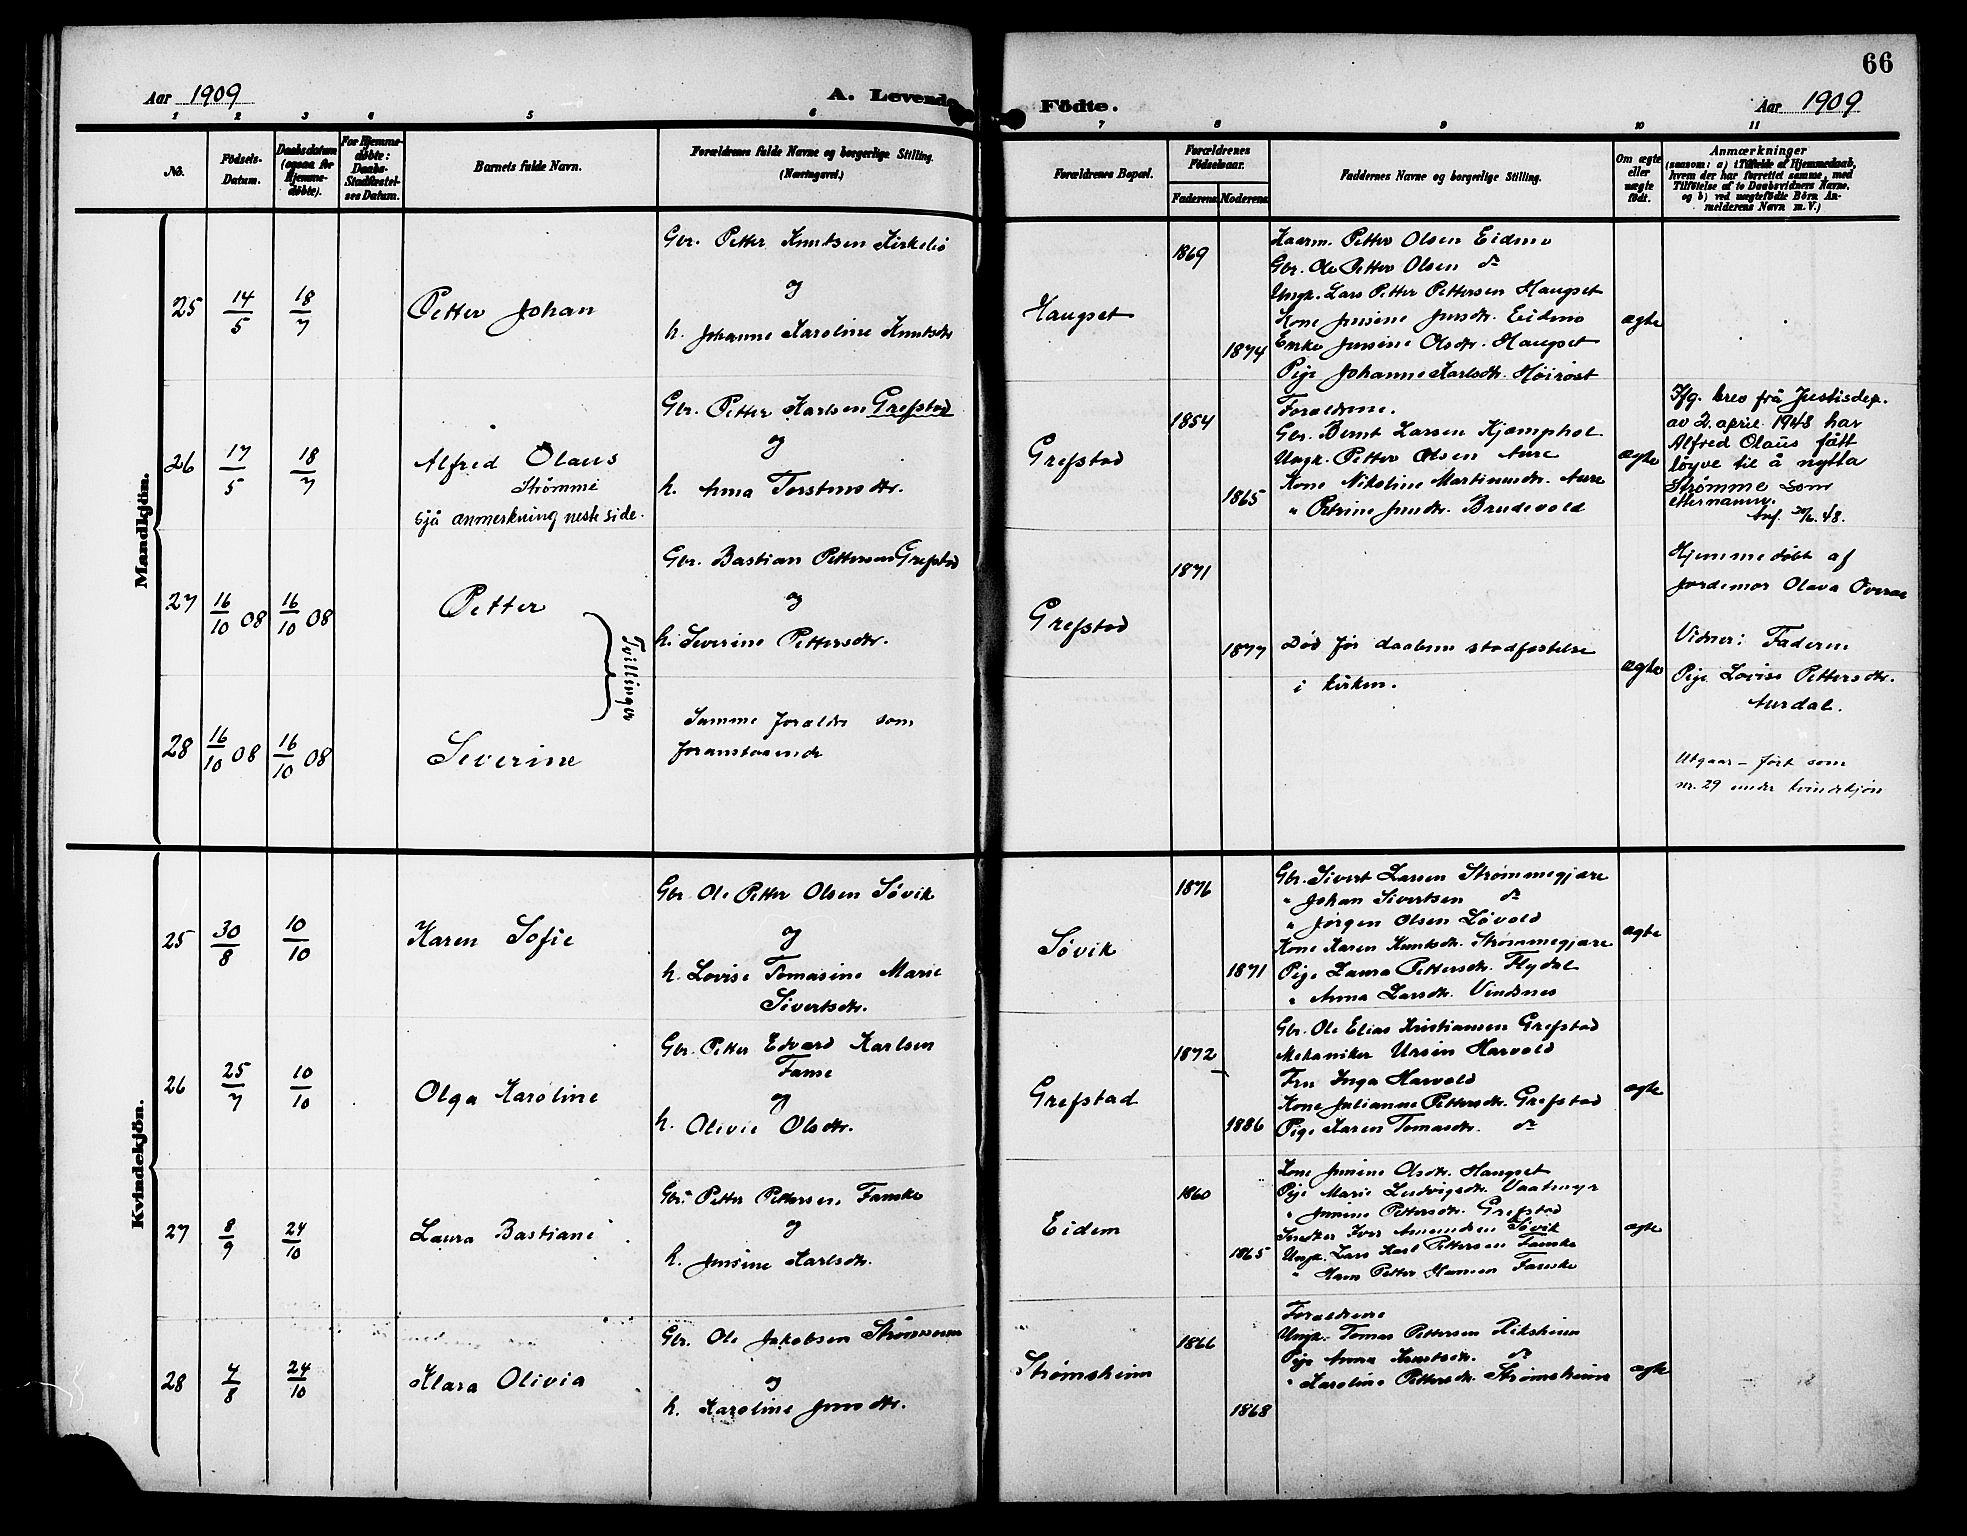 66
Aar 1909
A. Levende
Födte.
Aar 1909
1 2 3 4 5 6
7 8 9 10 11
No.
Födsels-
Datum.
Daabsdatum
(ogsaa for
Hjemme-
døbte).
For Hjemme-
døbte:
Daabs-
Stadfæstel-
ses Datum.
Barnets fulde Navn.
Forældrenes fulde Navne og borgerlige Stilling.
(Næringsvei.)
Forældrenes Bopæl.
Forældrenes
Födselsaar.
Faderens
Moderens
Faddernes Navne og borgerlige Stilling.
Om ægte
eller
uægte
født.
Anmærkninger
(saasom: a) i Tilfælde af Hjemmedaab,
hvem der har forrettet samme, med
Tilföielse af to Daabsvidners Navne,
og b) ved uægtefödte Börn An-
melderens Navn m. V.)
Mandkjön.
25
14/5
18/7
Petter Johan
Gbr. Petter Knutsen Kirkebö
og
h. Johanne Karoline Knutsdtr.
Haugset
1869
1874
Kaarm. Petter Olsen Eidem
Gbr. Ole Petter Olsen do
Ungk. Lars Petter Pettersen Haugset
Kone Jensine Jensdtr. Eidem
Enke Jensine Olsdtr. Haugset
Pige Johanne Karlsdtr. Höirøst
ægte
26
17/5
18/7
Alfred Olaus
Strømme
sjå anmerkning neste side.
Gbr. Petter Karlsen Grefstad
og
h. Anna Torstensdtr.
Grefstad
1854
1865
Forældrene.
Gbr. Bernt Larsen Kjæmphol
Ungk. Petter Olsen Aure
Kone Nikoline Martinusdtr. Aure
" Petrine Jensdtr. Brudevold
ægte
Ifg. brev frå Justisdep.
av 2. april 1948 har
Alfred Olaus fått
løyve til å nytta
Strømme som
etternamn.
27
16/10 08
16/10 08
Petter
Tvillinger
Gbr. Bastian Pettersen Grefstad
og
h. Severine Pettersdtr.
Grefstad
1871
1877
Död før daabens stadfæstelse
i kirken.
ægte
Hjemmedøbt af
jordemor Olava Overaae
Vidner: Faderen
Pige Lovise Pettersdtr.
Aurdal.
28
16/10 08
16/10 08
Severine
Samme forældre som
foranstaaende
Utgaar – ført som
nr. 29 under kvindekjøn
Kvindekjön.
25
30/8
10/10
Karen Sofie
Gbr Ole Petter Olsen Søvik
og
h. Lovise Tomasine Marie
Sivertsdtr.
Søvik
1876
1871
Gbr. Sivert Larsen Strømmegjære
" Johan Sivertsen do
" Jørgen Olsen Løvold
Kone Karen Knutsdtr. Strømmegjære
Pige Laura Pettersdtr. Flydal
" Anna Larsdtr. Vindsnes
ægte
26
25/7
10/10
Olga Karoline
Gbr. Petter Edvard Karlsen
Fame
og
h. Olivie Olsdtr.
Grefstad
1872
1886
Gbr. Ole Elias Kristiansen Grefstad
Mekaniker Ursin Harvold
Fru Inga Harvold
Kone Julianne Pettersdtr. Grefstad
Pige Karen Tomasdtr. do
ægte
27
8/9
24/10
Laura Bastiane
Gbr. Petter Pettersen Famke
og
h. Jensine Karlsdtr.
Eidem
1860
1865
Kone Jensine Olsdtr. Haugset
Pige Marie Ludvigsdtr. Vaatmyr
" Jensine Pettersdtr. Grefstad
Iver Amundsen Søvik
Ungk. Lars Karl Pettersen Famke
" Hans Petter Hansen Famke
ægte
28
7/8
24/10
Klara Olivia
Gbr. Ole Jakobsen Strømsheim
og
h. Karoline Jensdtr.
Strømsheim
1866
1868
Forældrene
Ungk. Tomas Pettersen Riksheim
Pige Anna Knutsdtr. do
" Karoline Pettersdtr. Strømsheim
ægte